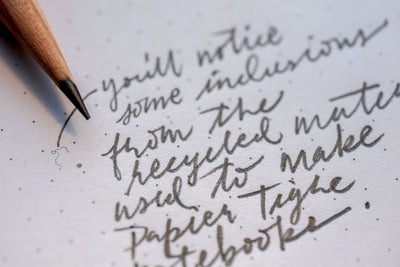 you'll notice
some inclusions
from the
recycled mater
used to make
papier tigre
notebooks.